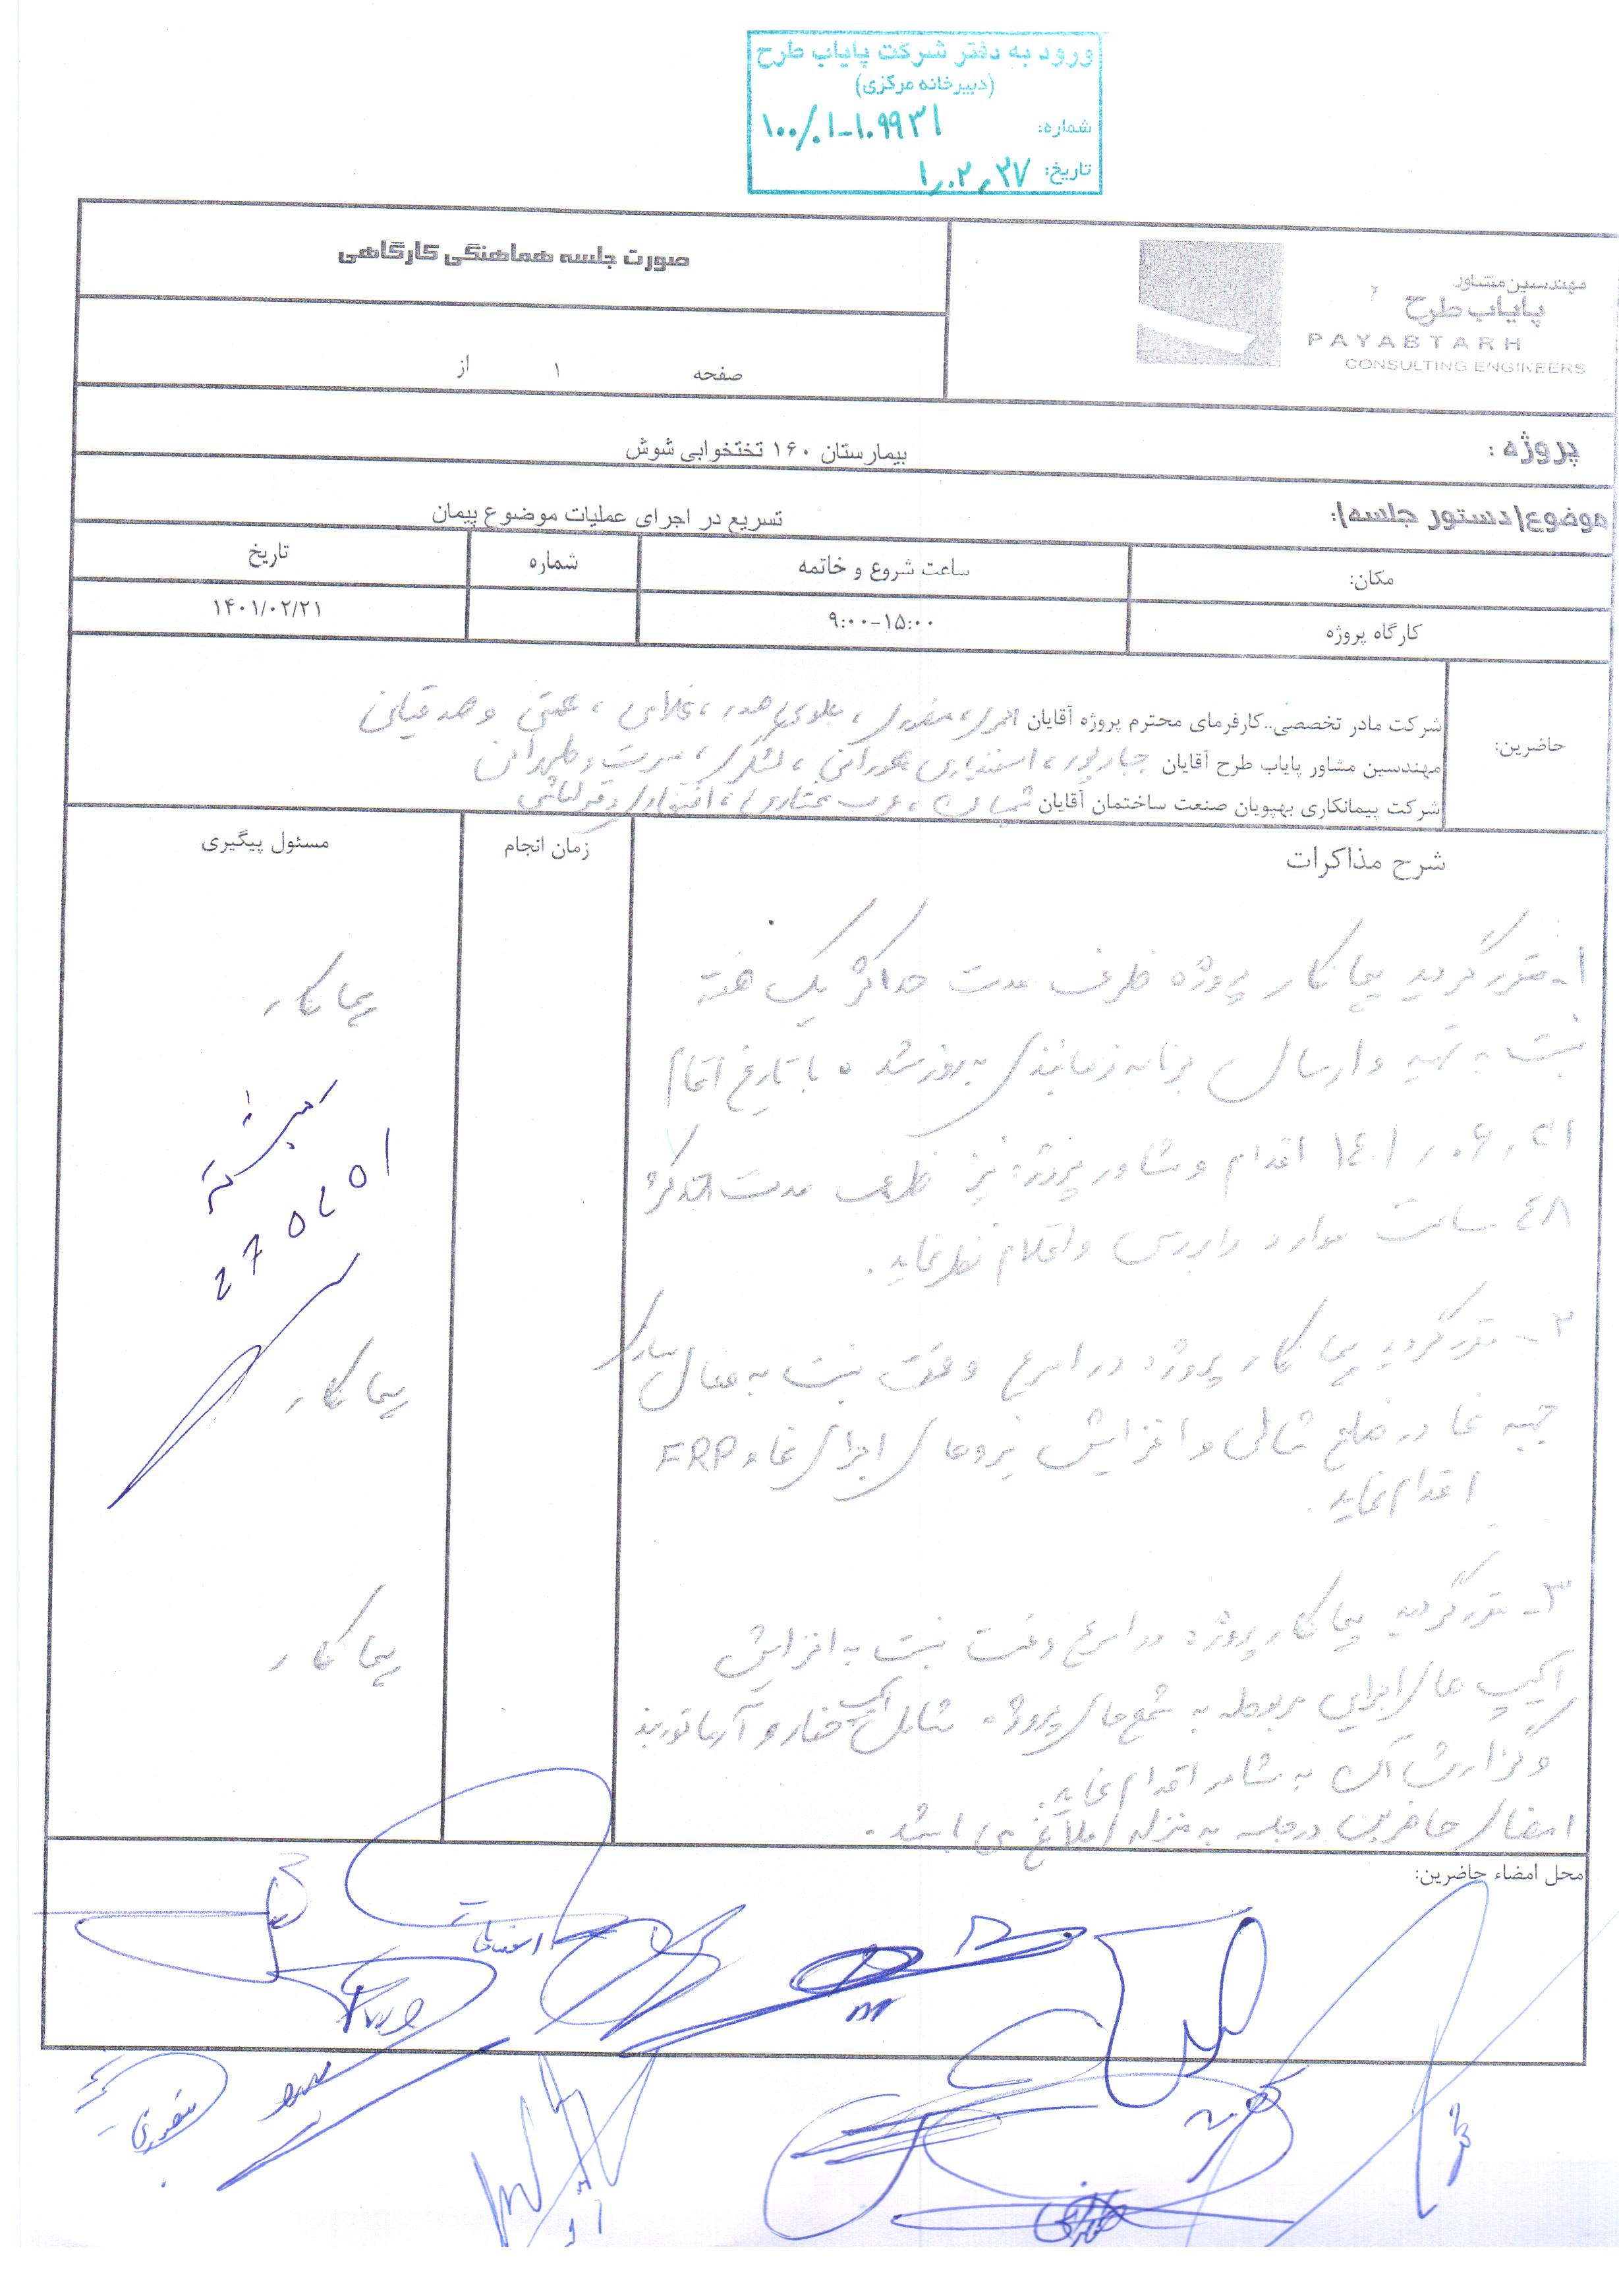 ورود به دفتر شرکت پایاب طرح
(دبیرخانه مرکزی)
شماره: ۱۰۰/۰۱-۱۰۹۹۳۱
تاریخ: ۱٫۰۲٫۲۷
مهندسین مشاور
پایاب طرح
PAYABTARH
CONSULTING ENGINEERS
صورت جلسه هماهنگی کارگاهی
صفحه ۱ از
پروژه : بیمارستان ۱۶۰ تختخوابی شوش
موضوع(دستور جلسه): تسریع در اجرای عملیات موضوع پیمان
مکان: ساعت شروع و خاتمه شماره تاریخ
کارگاه پروژه ۹:۰۰-۱۵:۰۰ ۱۴۰۱/۰۲/۲۱
حاضرین:
شرکت مادر تخصصی..کارفرمای محترم پروژه آقایان
مهندسین مشاور پایاب طرح آقایان جبارپور،
شرکت پیمانکاری بهپویان صنعت ساختمان آقایان
شرح مذاکرات زمان انجام مسئول پیگیری
۱- مقرر گردید پیمانکار پروژه ظرف مدت حداکثر یک هفته
پیمانکار
نسبت به تهیه و ارسال برنامه زمانبندی به روز شده با تاریخ اتمام
۱۴۰۱٫۰۶٫۳۱ اقدام و مشاور پروژه نیز ظرف مدت حداکثر
۴۸ ساعت موارد را بررسی و اعلام نظر نماید.
۲- مقرر گردید پیمانکار پروژه در اسرع وقت نسبت به فعال سازی
پیمانکار
جبهه نما در ضلع شمالی و افزایش نیروهای اجرای نما و FRP
اقدام نماید.
۳- مقرر گردید پیمانکار پروژه در اسرع وقت نسبت به افزایش
پیمانکار
اکیپ های اجرایی مربوطه به شمع های پروژه شامل اکیپ حفار و آرماتوربند
و گزارش آن به مشاور اقدام نماید.
امضای حاضرین در جلسه به منزله ابلاغ می باشد.
محل امضاء حاضرین: